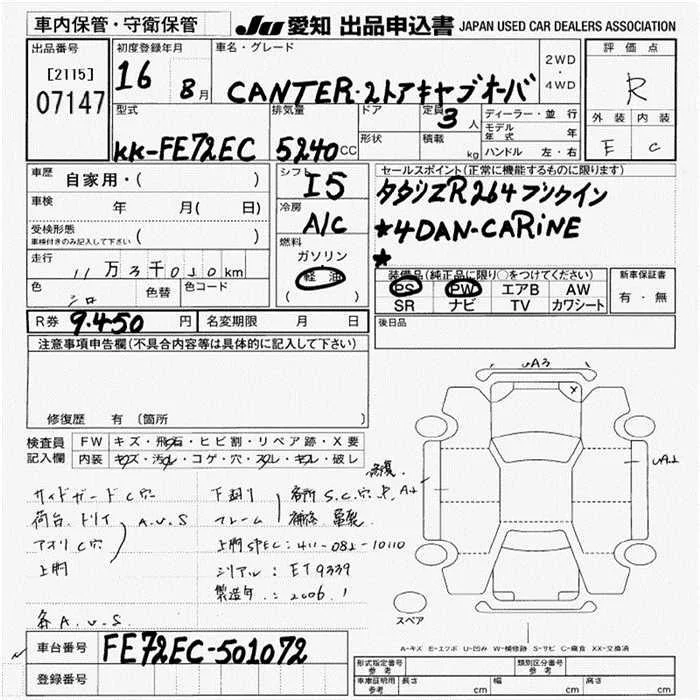 車内保管・守衛保管
JU 愛知 出品申込書 JAPAN USED CAR DEALERS ASSOCIATION
出品番号
[2115]
07147
初度登録年月
16 8月
車名・グレード
CANTER・2トアキャブオーバ
2WD・4WD
評価点
R
外装 内装
E C
型式
KK-FE72EC
排気量
5240CC
ドア
形状
定員
3人
積載 kg
ディーラー・並行
モデル年式 年
ハンドル 左・右
車歴 自家用・( )
車検 年 月(日)
受検形態
車検付きのみ記入して下さい ( )
走行 11万3千010km
色 シロ 色替 色コード
シフト
I5
冷房
A/C
燃料
ガソリン
軽油
( )
セールスポイント(正常に機能するものに限ります)
タダノZR264フックイン
★4DAN-CARiNE
★
装備品(純正品に限り○をつけてください)
PS PW エアB AW
SR ナビ TV カワシート
新車保証書
有・無
R券 9.450円 名変期限 月 日
後日品
注意事項申告欄(不具合内容等は具体的に記入して下さい)
修復歴 有 〔箇所 〕
検査員記入欄
FW キズ・飛石・ヒビ割・リペア跡・X要
内装 キズ・汚レ・コゲ・穴・スレ・キレ・破レ
サイドガードC穴
荷台、トリイ A.U.S
アオリC穴
上物
各A.U.S
下廻り 各所S.C.穴.P.
フレーム 補修
上物SPEC:411-082-10110
シリアル:ET9339
製造年:2006.1
UA3
X
UA2
スペア
A-キズ E-エクボ U-凹み W-補修跡 S-サビ C-腐食 XX-交換済
車台番号 FE72EC-501072
登録番号
形式指定番号 参考
類別区分番号 参考
車庫証明用 参考
長さ cm 幅 cm 高さ cm